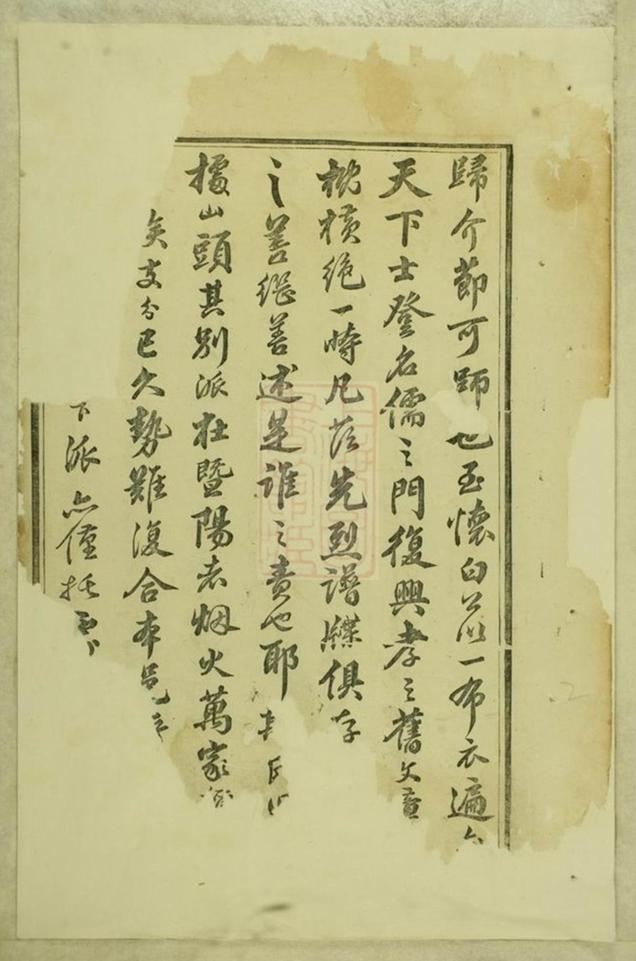 歸介節可師也至懷白公以一布衣遍
天下士登名儒之門復興孝之舊文
枕橫絶一時凡茲先烈譜牒俱存
之善繼善述是誰之責也耶
據山頭其别派在暨陽者烟火萬家
矣支分已久勢難復合本
下派亦僅